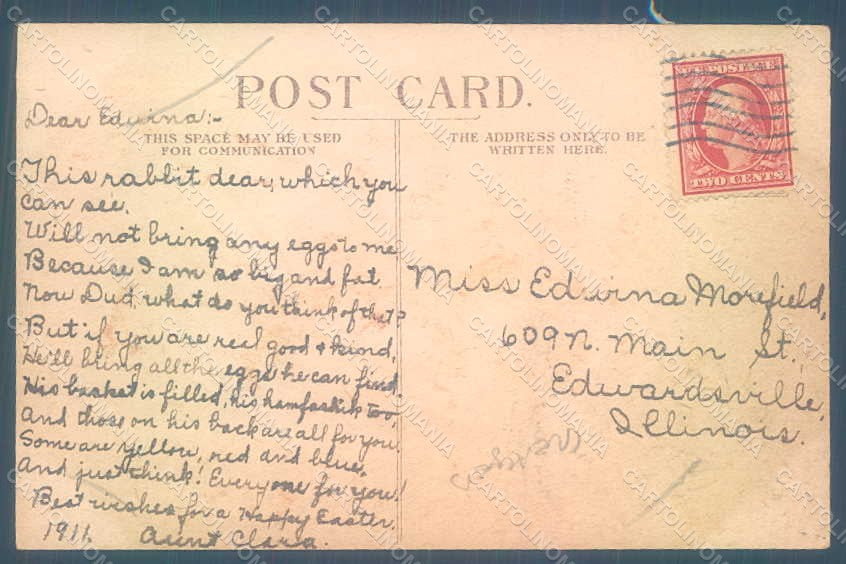 POST CARD.
Dear Edwina:-
THIS SPACE MAY BE USED
FOR COMMUNICATION
THE ADDRESS ONLY TO BE
WRITTEN HERE.
U.S. POSTAGE
TWO CENTS
This rabbit dear, which you
can see,
Will not bring any eggs to me
Because I am so big and fat.
Now Dud, what do you think of that?
But if you are real good & kind,
He'll bring all the eggs he can find.
His basket is filled, his too,
And those on his back are all for you.
Some are yellow, red and blue,
And just think! Everyone for you!
Best wishes for a Happy Easter.
1911. Aunt Clara.
Miss Edwina Morefield,
609 N. Main St.,
Edwardsville,
Illinois.
CARTOLINOMANIA